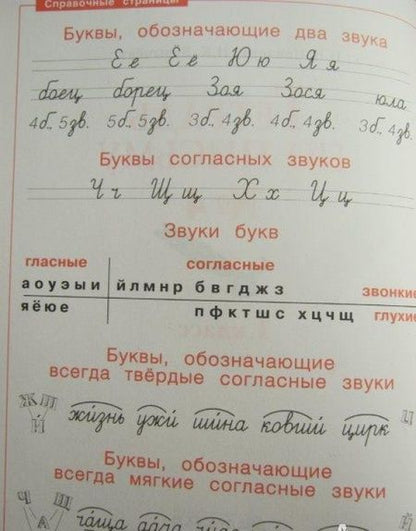 Справочные страницы
Буквы, обозначающие два звука
Ее Ее Юю Яя
боец борец Зоя Зося юла
4б., 5зв. 5б., 5зв. 3б., 4зв. 4б., 4зв. 3б., 4зв.
Буквы согласных звуков
Чч Щщ Хх Цц
Звуки букв
гласные согласные
аоуэыи йлмнр бвгджз звонкие
яёюе пфктшс хцчщ глухие
Буквы, обозначающие
всегда твёрдые согласные звуки
Ж Ш
И
жизнь ужи шина ковши цирк Ц
Буквы, обозначающие
всегда мягкие согласные звуки
Ч Щ
А
чаща